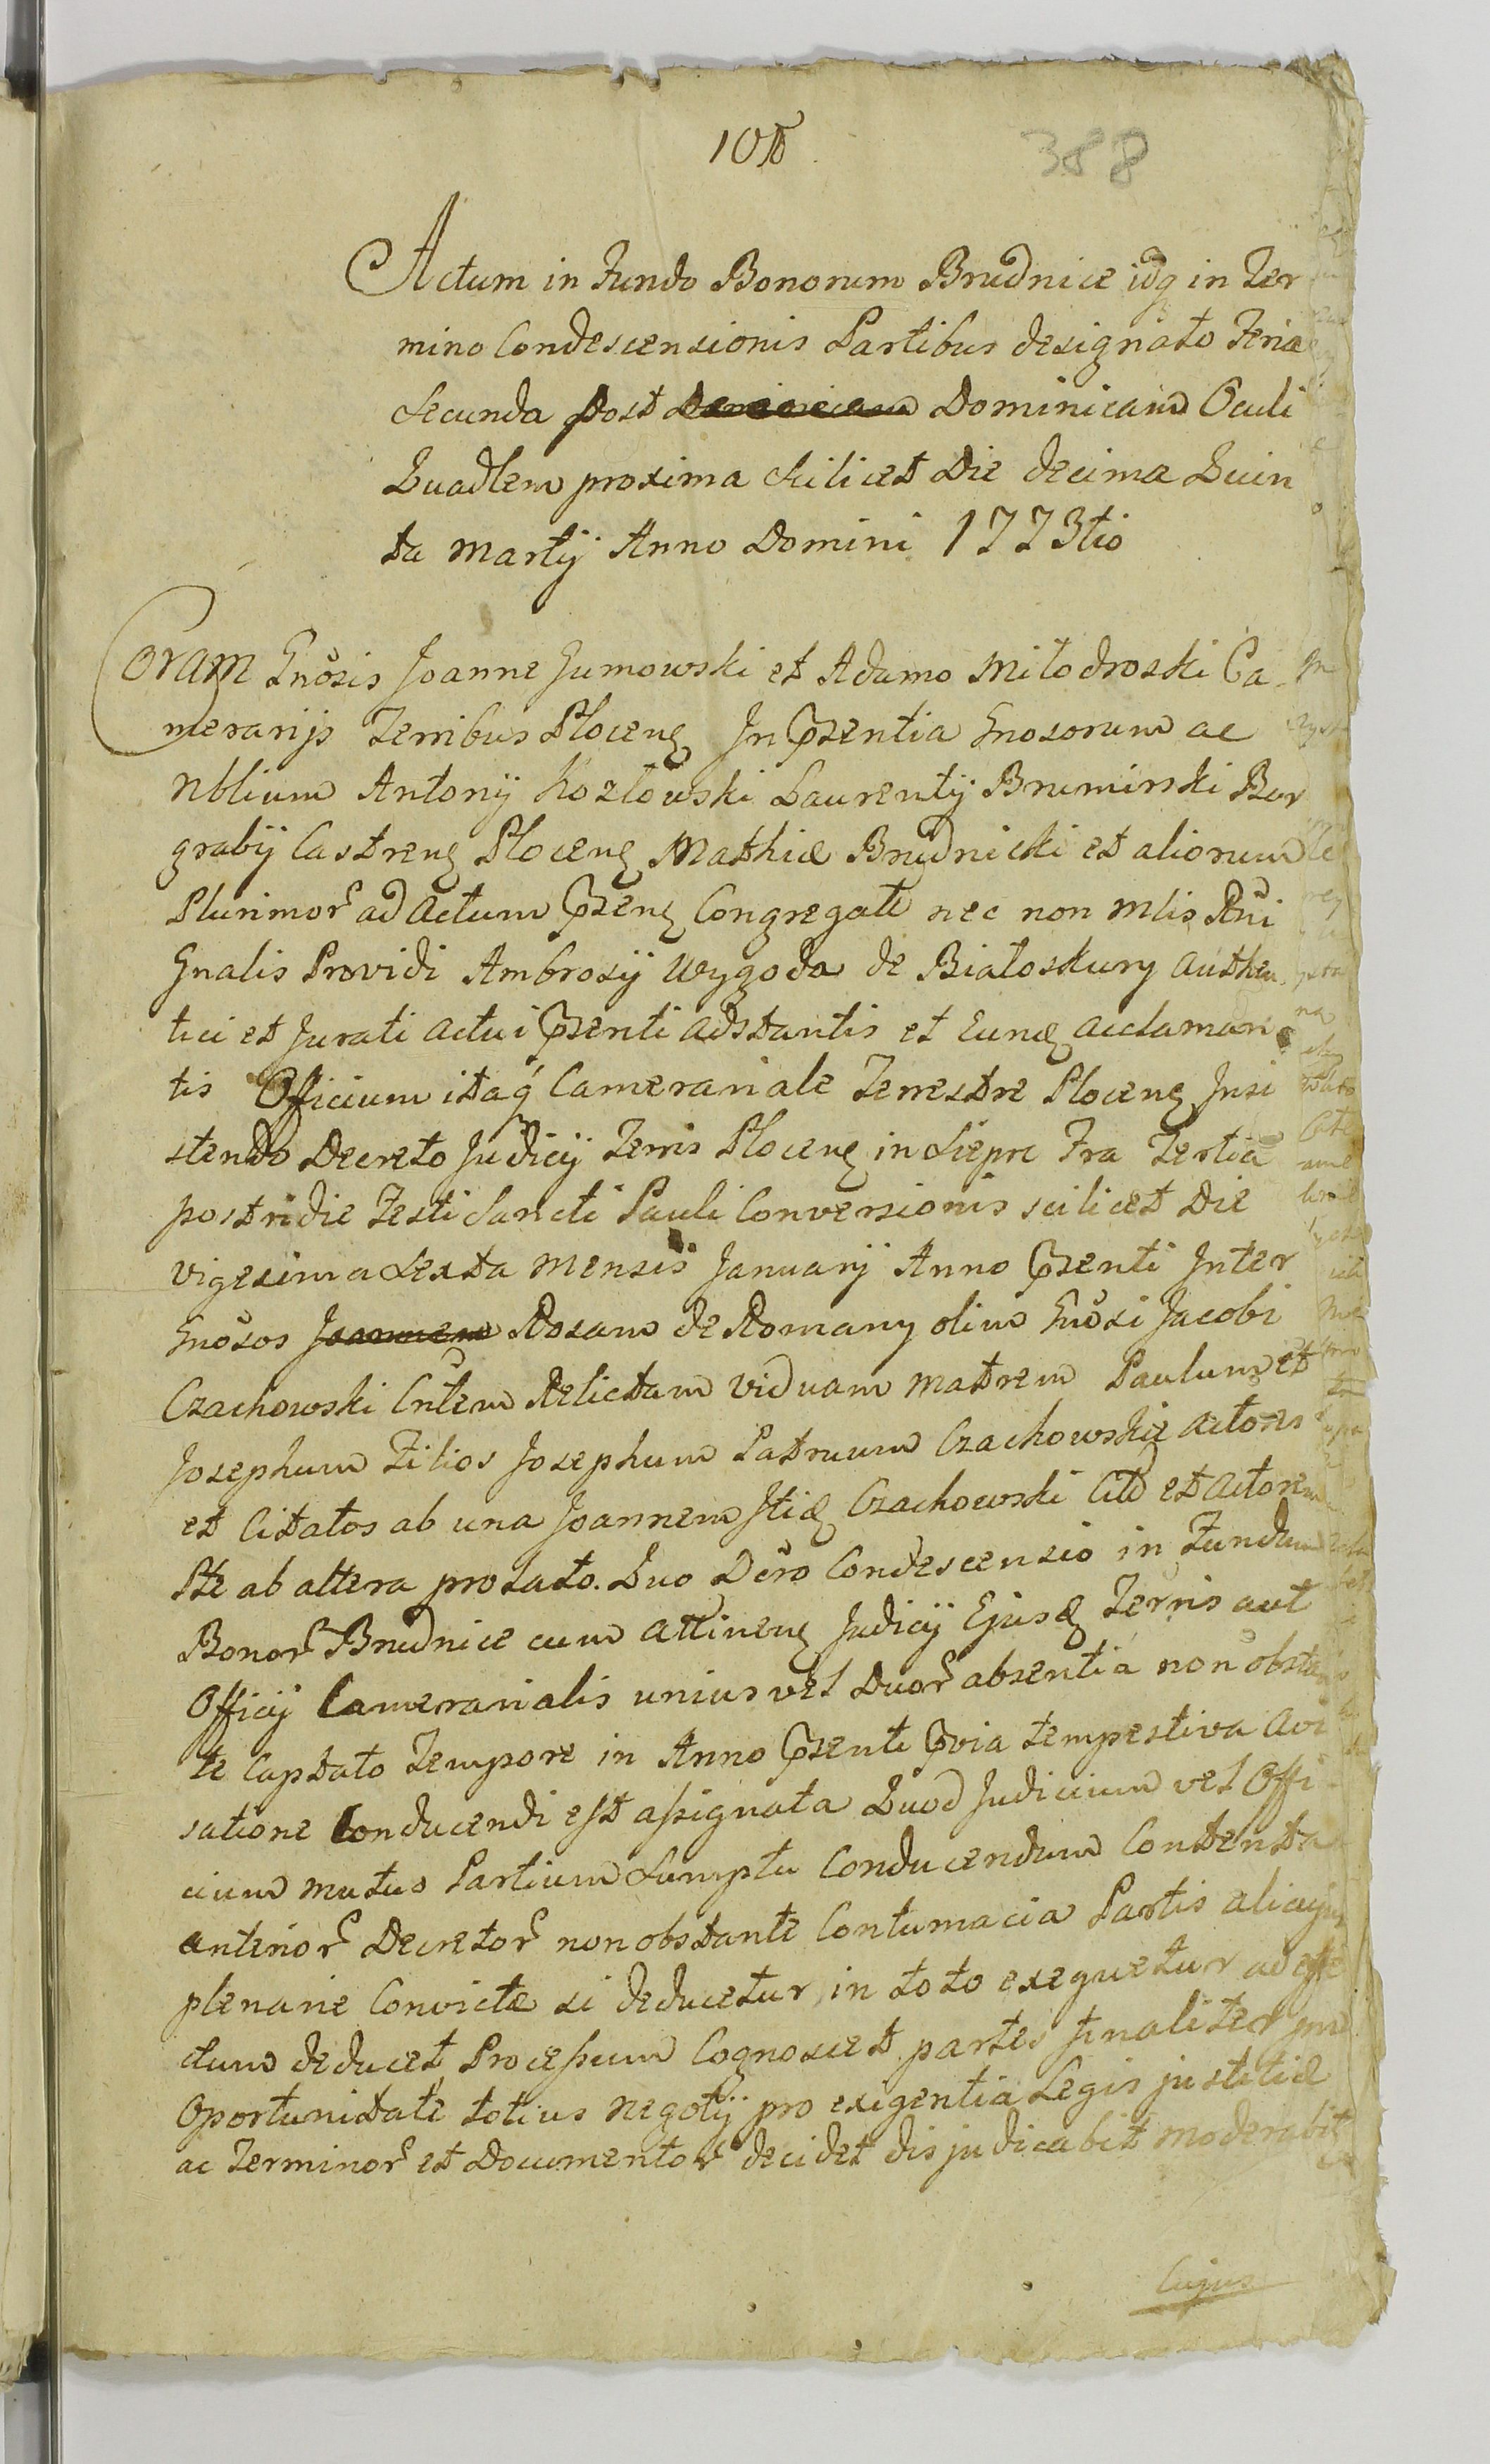 388
Actum in Fundo Bonorum Brudnice idq in Ter
mino Condescensionis Partibus designato Feria
Secunda post Dominicam Dominicam Oculi
Quadlem proxima scilicet Die decima Quin
ta Martij Anno Domini 1773tio
Coram Gnosis Joanne Gumowski et Adamo Miłodroski Ca
merarijs Terribus Plocens In Pzentia Gnosorum ac
Nblium Antonij Kozłowski Laurentij Brumirski Bur
grabij Castrens Plocens Mathiæ Brudnicki et aliorum
Plurimor ad Actum Pzens Congregati nec non Mlis Rni
Gnalis Providi Ambrosij Wygoda de Białoskury Authen
tici et Jurati Actui Pzenti adstantis et Eund acclaman
tis Officium itaq Camerariale Terrestre Plocens Insi
stendo Decreto Judicij Terris Plocens in Siepre Fra Tertia
postridie Festi Sancti Pauli Conversionis scilicet Die
Vigesima Sexta Mensis Januarij Anno Pzenti Inter
Gnosos Joannem Rosam de Romany olim Gnosi Jacobi
Czachowski Cntem Relictam Viduam Matrem Paulum et
Josephum Filios Josephum Patruum Czachowskie Actores
et Citatos ab una Joannem Itid Czachowski Citd et Actorem
Pte ab altera prolato. Quo Dcro Condescensio in Fundum
Bonor Brudnice cum Attinens Judicij Ejusd Terris aut
Officij Camerarialis unius vel Duor absentia non obstan
te Captato Tempore in Anno Pzenti Pvia tempestiva Avi
satione Conducendi est assignata Quod Judicium vel Offi
cium mutuo Partium Sumptu Conducendum Contenta
anterior Decretor non obstante Contumacia Partis alicujus
plenarie Convictæ si deducetur in toto exequetur ad effe
ctum deducet Processum Cognoscet partes finaliter
Oportunitate totius negotij pro exigentia Legis justitiæ
ac Terminor et Documentor decidet disjudicabit moderabit
Cujus